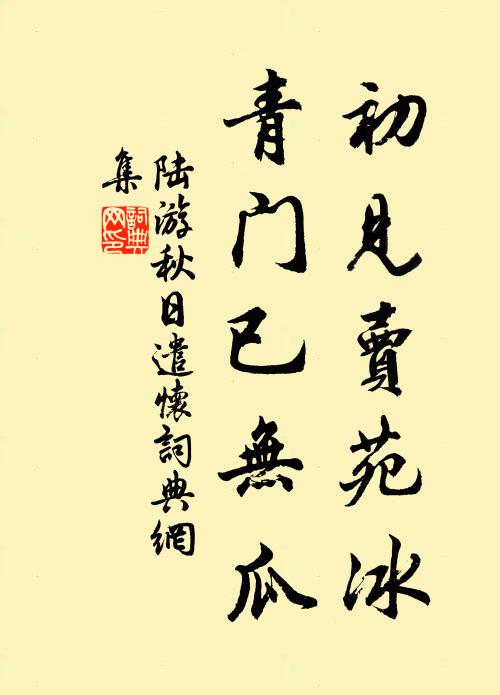 初見賣苑冰
青门已無瓜
陆游秋日遣懷詞典網
集
詞典
网印